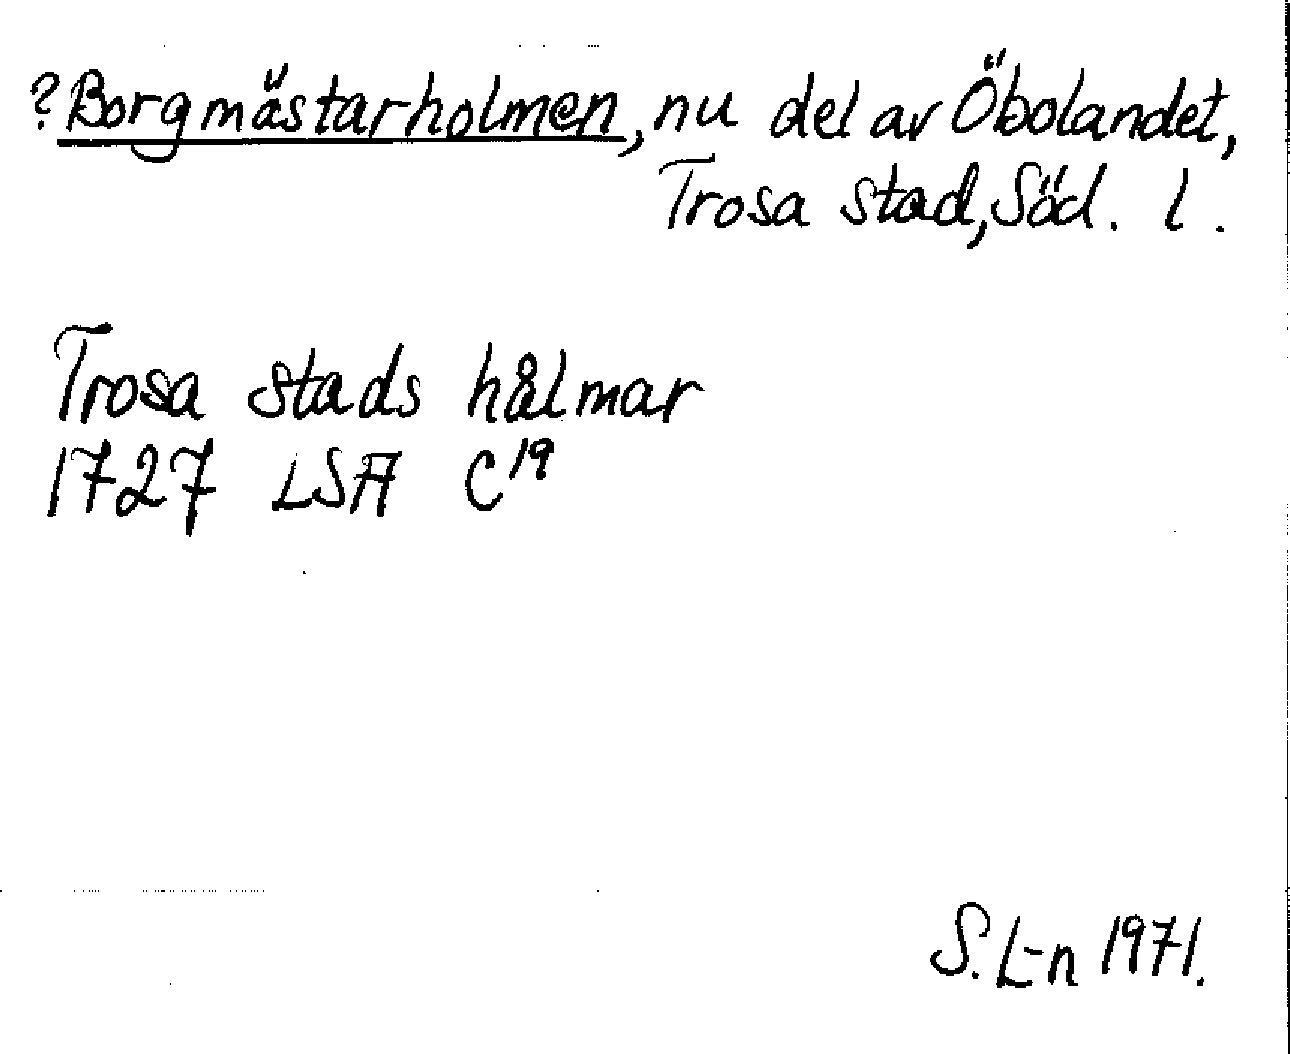 ?Borgmästarholmen, nu del av Öbolandet,
Trosa stad, Söd. l.
Trosa stads hålmar
1727 LSA C¹⁹
S. L-n 1971.